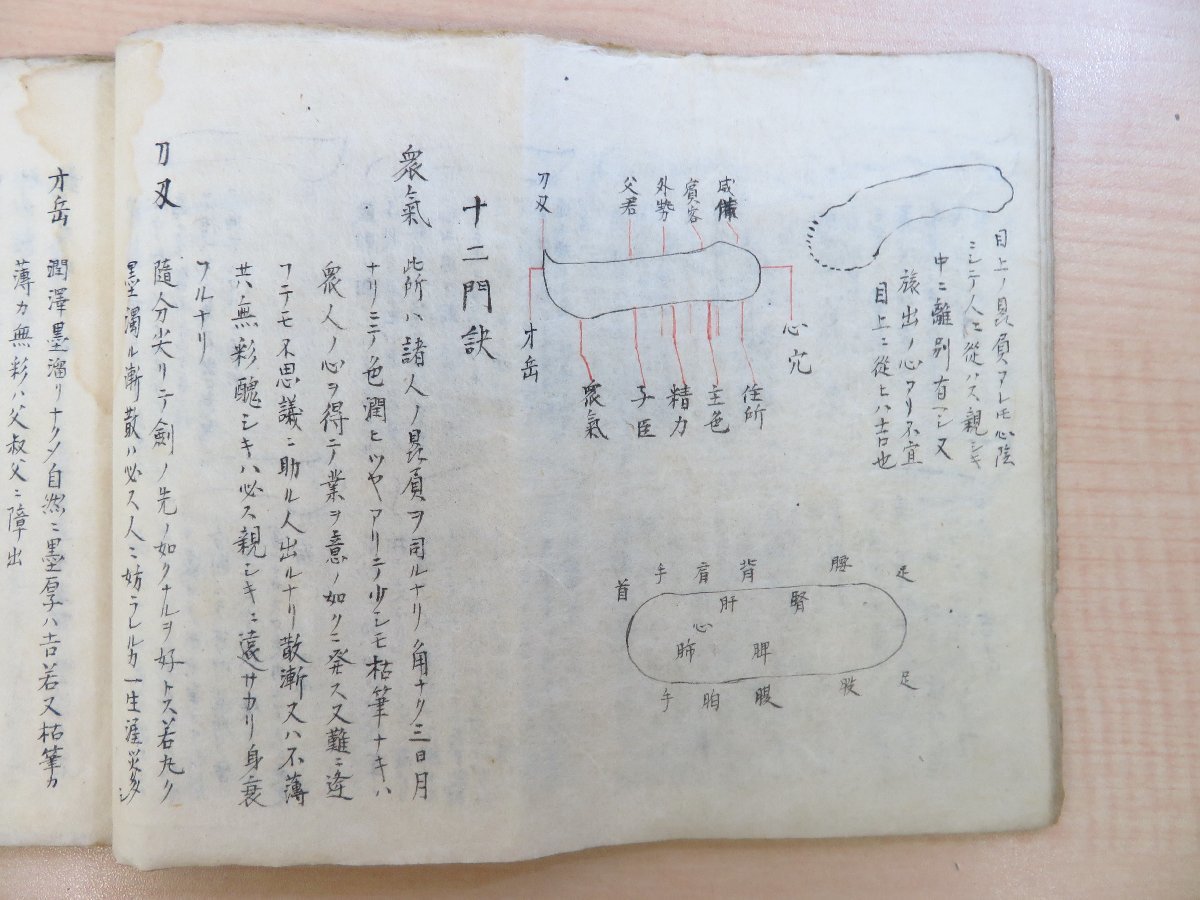 目上ノ昆員ヲレ𪜈心陰
ミシテ人ニ從ハス親シキ
中ニ離別有ヘシ又
旅出ノ心アリ不宜
目上ニ從ヒハ吉也
咸備
賓客
外勢
父君
刀刄
心穴
才岳
住所
主色
精力
子臣
衆氣
首
手
肩
背
腰
足
肝
腎
心
肺
脾
手
胸
腹
股
足
十二門訣
衆氣
此所ハ諸人ノ昆員ヲ司ルナリ角ナク三日月
ナリニテ色潤ヒツヤアリテ少シモ枯筆ナキハ
衆人ノ心ヲ得テ業ヲ意ノ如クニ発ス又難ニ逢
フテモ不思議ニ助ル人出ルナリ散漸又ハ不薄
共ハ無彩醜シキハ必ス親シキニ遠サカリ身衰
フルナリ
刀刄
隨分尖リテ劍ノ先ノ如クナルヲ好トス若丸ク
墨濁ル漸散ハ必ス人ニ妨ラレルカ一生涯災多シ
才岳
潤澤墨溜リナクタ自然ニ墨厚ハ吉若又枯筆カ
薄カ無彩ハ父叔父ニ障出